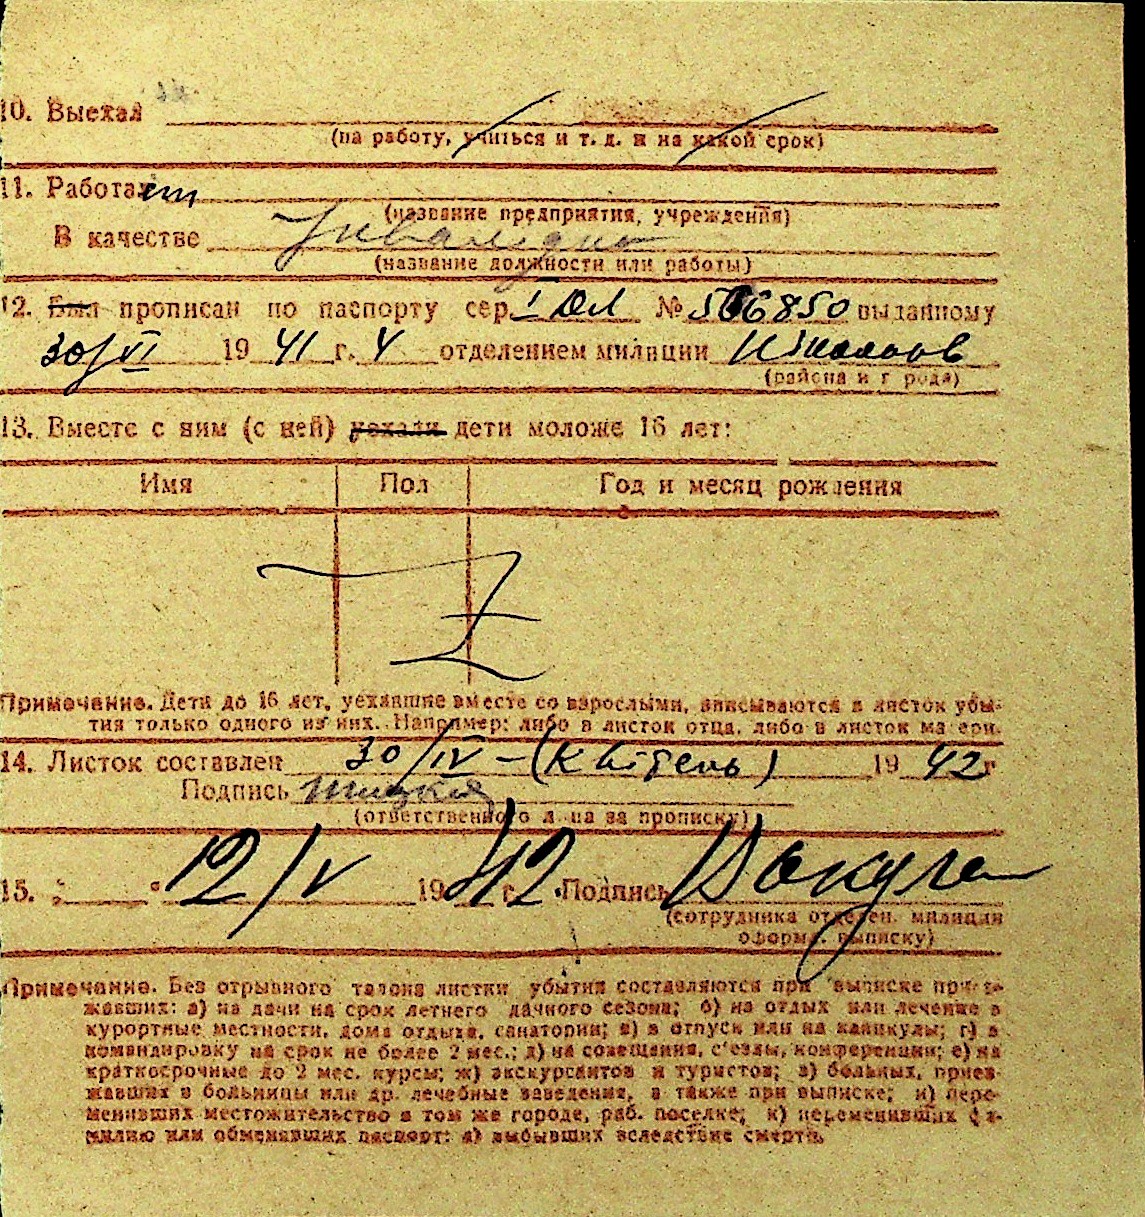 10. Выехал
(на работу, учиться и т. д. и на какой срок)
11. Работает
(название предприятия, учреждения)
В качестве
(название должности или работы)
12. Был прописан по паспорту сер. № 506850 выданному
30/VI 1941 г. отделением милиции
(района и города)
13. Вместе с ним (с ней) уехали дети моложе 16 лет:
Имя Пол Год и месяц рождения
Примечание. Дети до 16 лет, уехавшие вместе со взрослыми, вписываются в листок убы-
тия только одного из них. Например: либо в листок отца, либо в листок матери.
14. Листок составлен 30/IV - (Квітень) 1942 г
Подпись
(ответственного лица за прописку)
15. " 12/V 1942 г. Подпись
(сотрудника отделен. милиции
оформ. выписку)
Примечание. Без отрывного талона листки убытия составляются при выписке приез-
жавших: а) на дачи на срок летнего дачного сезона; б) на отдых или лечение в
курортные местности, дома отдыха, санатории; в) в отпуск или на каникулы; г) в
командировку на срок не более 2 мес.; д) на совещания, с'езды, конференции; е) на
краткосрочные до 2 мес. курсы; ж) экскурсантов и туристов; з) больных, приез-
жавших в больницы или др. лечебные заведения, а также при выписке; и) пере-
менивших местожительство в том же городе, раб. поселке; к) переменивших фа-
милию или обменявших паспорт; л) выбывших вследствие смерти.